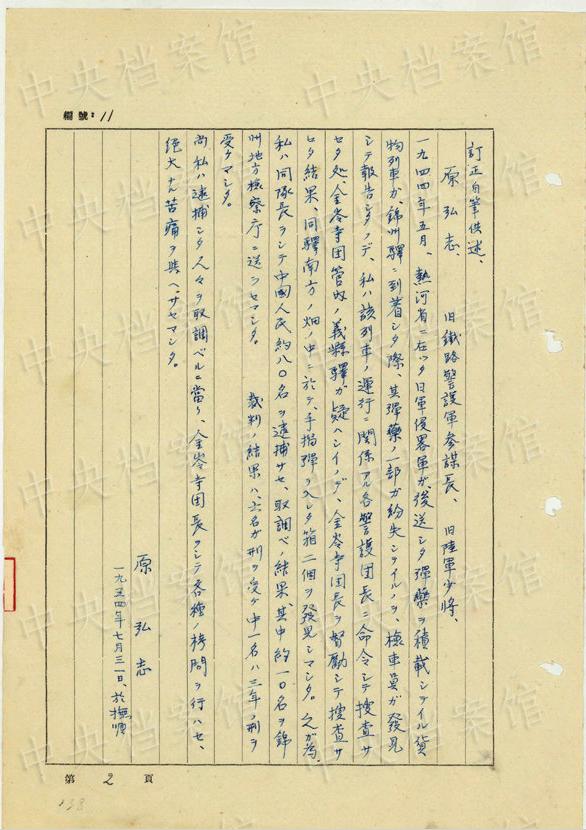 編號：11
訂正自筆供述、
原弘志、 旧鐵路警護軍參謀長、 旧陸軍少將、
一九四四年五月、熱河省ニ在ッタ日軍侵畧軍ガ、後送シタ彈藥ヲ積載シテイル貨
物列車ガ、錦州驛ニ到着シタ際、其彈藥ノ一部ガ紛失シテイルノヲ、檢車員ガ發見
シテ報告シタノデ、私ハ該列車ノ運行ニ関係アル各警護団長ニ命令シテ搜査サ
セタ処、金岺寺団管内ノ義縣驛ガ疑ハシイノデ、金岺寺団長ヲ督励シテ搜査サ
セタ結果、同驛南方ノ畑ノ中ニ於テ、手榴彈ヲ入レタ箱二個ヲ發見シマシタ。之ガ為、
私ハ同隊長ヲシテ中國人民約八〇名ヲ逮捕サセ、取調ベノ結果、其中約一〇名ヲ錦
州地方檢察庁ニ送ラセマシタ。 裁判ノ結果ハ、六名ガ刑ヲ受ケ中一名ハ三年ノ刑ヲ
受ケマシタ。
尚私ハ逮捕シタ人々ヲ取調ベルニ當リ、金岺寺団長ヲシテ各種ノ拷問ヲ行ハセ、
絕大ナ苦痛ヲ與ヘサセマシタ。
原弘志
一九五四年七月三一日、於撫順
第2頁
中央档案馆